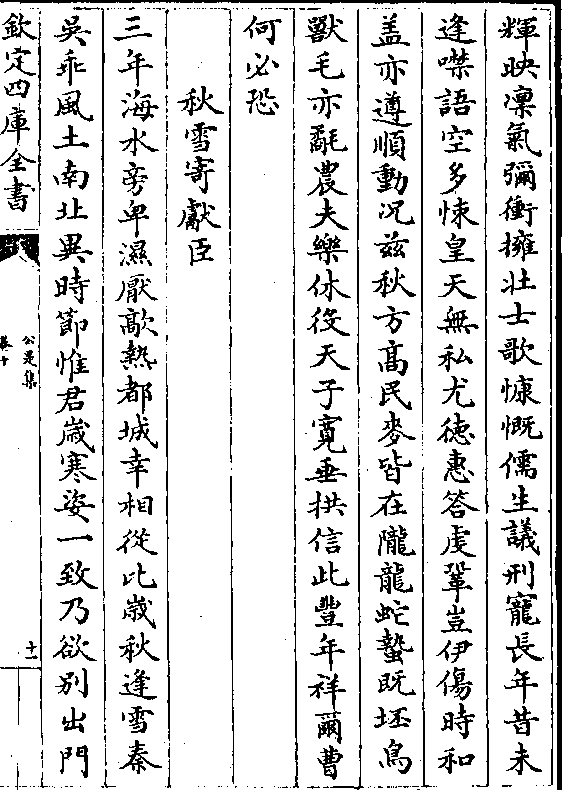 輝映凜氣彌衝擁壯士歌慷慨儒生議刑寵長年昔未
逢噤語空多悚皇天無私尤徳惠答虔鞏豈伊傷時和
盖亦遵順動况兹秋方髙民麥皆在隴龍蛇蟄既坯鳥
獸毛亦氄農夫樂休役天子寛垂拱信此豐年祥爾曹
何必恐
秋雪寄獻臣
三年海水旁卑濕厭歊熱都城幸相從比嵗秋逢雪秦
吳乖風土南北異時節惟君嵗寒姿一致乃欲别出門
欽定四庫全書
公是集
卷十
十一